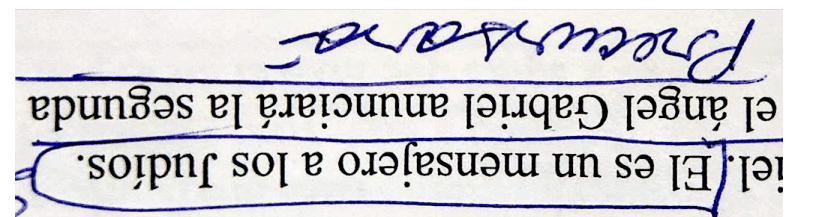 iel. El es un mensajero a los Judíos.
el ángel Gabriel anunciará la segunda
Precursará